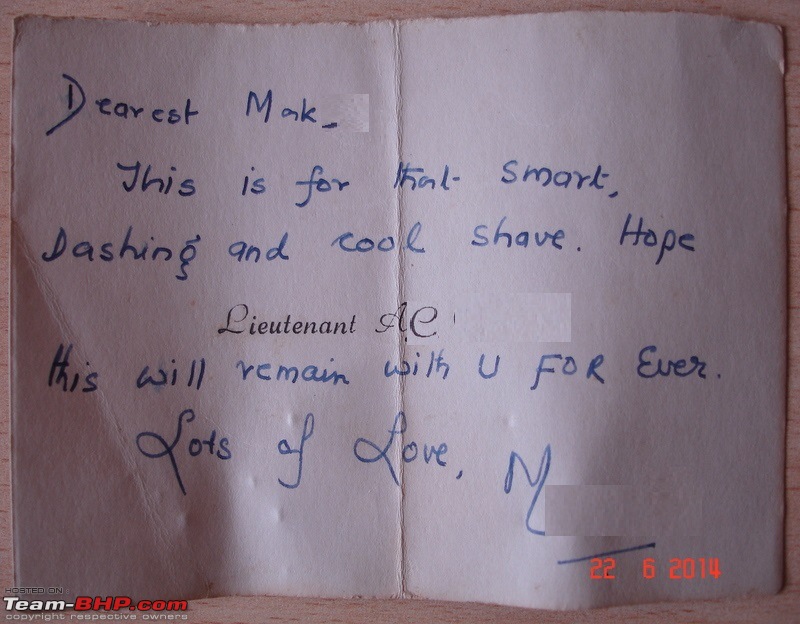 Dearest Mak
This is for that smart,
Dashing and cool shave. Hope
Lieutenant AC
this will remain with U FOR Ever.
Lots of Love, M
22 6 2014
HOSTED ON
Team-BHP.com
copyright respective owners